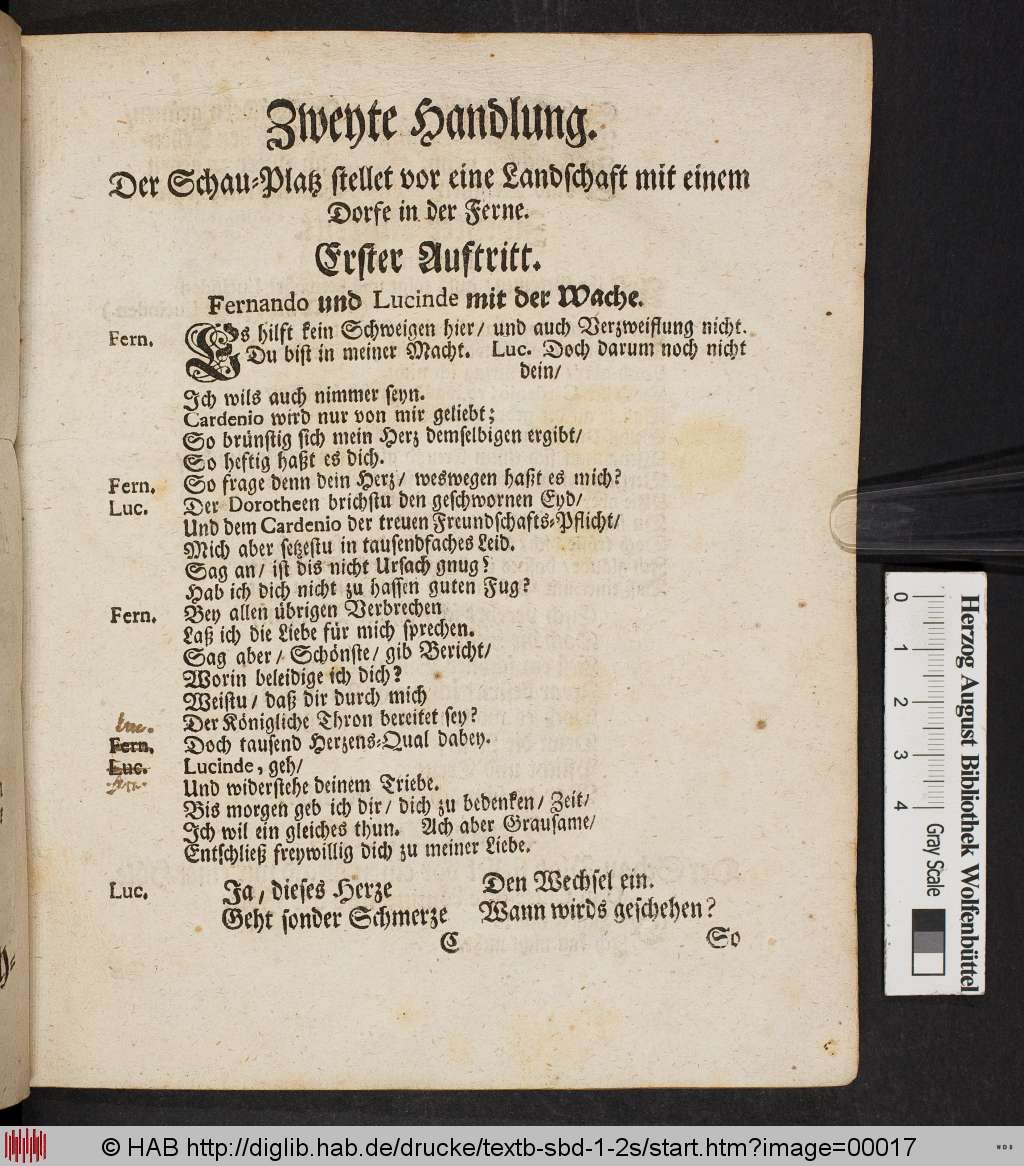 Zweyte Handlung.
Der Schau-Platz stellet vor eine Landschaft mit einem
Dorfe in der Ferne.
Erster Auftritt.
Fernando und Lucinde mit der Wache.
Fern. Es hilft kein Schweigen hier/ und auch Verzweiflung nicht.
Du bist in meiner Macht. Luc. Doch darum noch nicht
dein/
Ich wils auch nimmer seyn.
Cardenio wird nur von mir geliebt;
So brünstig sich mein Herz demselbigen ergibt/
So heftig haßt es dich.
Fern. So frage denn dein Herz/ weswegen haßt es mich?
Luc. Der Dorotheen brichstu den geschwornen Eyd/
Und dem Cardenio der treuen Freundschafts-Pflicht/
Mich aber setzestu in tausendfaches Leid.
Sag an/ ist dis nicht Ursach gnug?
Hab ich dich nicht zu hassen guten Fug?
Fern. Bey allen übrigen Verbrechen
Laß ich die Liebe für mich sprechen.
Sag aber/ Schönste/ gib Bericht/
Worin beleidige ich dich?
Weistu/ daß dir durch mich
Der Königliche Thron bereitet sey?
Luc.
Fern. Doch tausend Herzens-Qual dabey.
Luc. Lucinde, geh/
Fern.
Und widerstehe deinem Triebe.
Bis morgen geb ich dir/ dich zu bedenken/ Zeit/
Ich wil ein gleiches thun. Ach aber Grausame/
Entschließ freywillig dich zu meiner Liebe.
Luc. Ja, dieses Herze
Geht sonder Schmerze
Den Wechsel ein.
Wann wirds geschehen?
C
So
0 1 2 3 4
Herzog August Bibliothek Wolfenbüttel
Gray Scale
© HAB http://diglib.hab.de/drucke/textb-sbd-1-2s/start.htm?image=00017
WDB